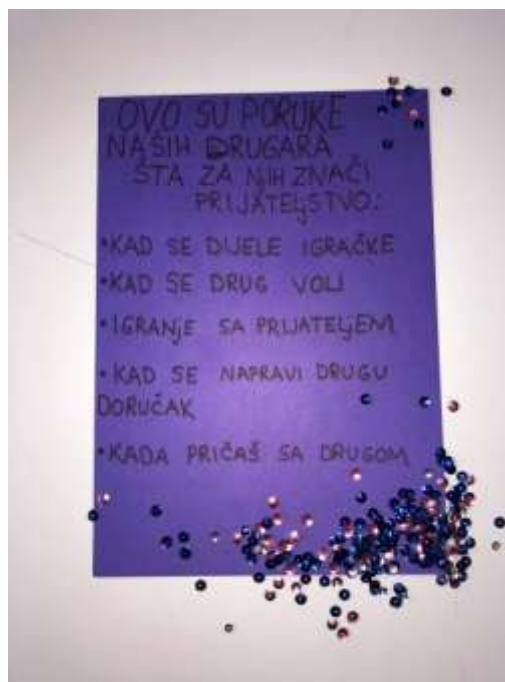 OVO SU PORUKE
NAŠIH DRUGARA
ŠTA ZA NJIH ZNAČI
PRIJATELJSTVO:
•KAD SE DIJELE IGRAČKE
•KAD SE DRUG VOLI
•IGRANJE SA PRIJATELJEM
•KAD SE NAPRAVI DRUGU
DORUČAK
•KADA PRIČAŠ SA DRUGOM